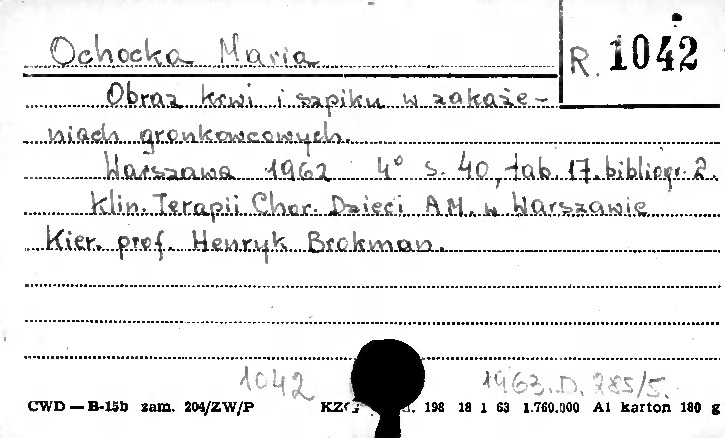 Ochocka Maria
R. 1042
Obraz krwi i szpiku w zakaże-
niach gronkowcowych.
Warszawa 1962 4° s. 40, tab. 17. bibliogr. 2.
Klin. Terapii Chor. Dzieci AM. w Warszawie
Kier. prof. Henryk Brokman.
1042 1963. D. 285/5.
CWD — B-15b zam. 204/ZW/P 198 18 1 63 1.760.000 A1 karton 180 g